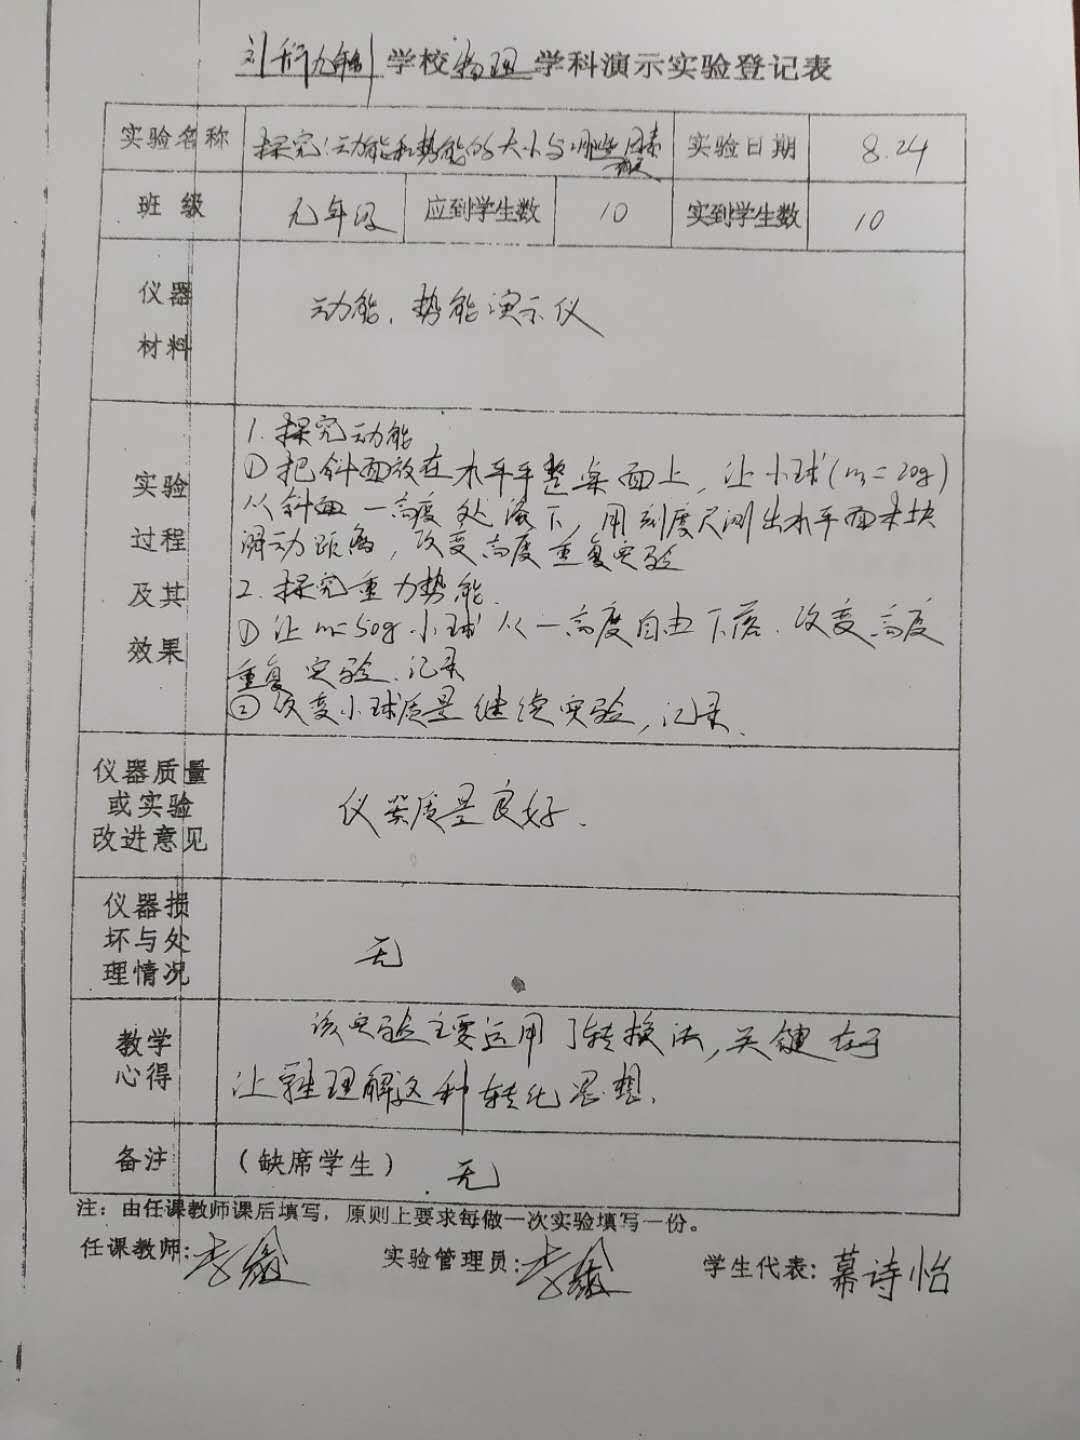 刘科九年制学校物理学科演示实验登记表
实验名称 探究:动能和势能的大小与哪些因素有关 实验日期 8.24
班级 九年级 应到学生数 10 实到学生数 10
仪器 动能、势能演示仪
材料
1.探究动能
①把斜面放在水平平整桌面上,让小球(m=20g)
实验 从斜面一高度处滚下,用刻度尺测出水平面木块
过程 滑动距离,改变高度重复实验
及其 2.探究重力势能.
效果 ①让m=50g小球从一高度自由下落.改变高度
重复实验.记录
②改变小球质量继续实验,记录.
仪器质量
或实验 仪器质量良好.
改进意见
仪器损
坏与处 无
理情况
教学 该实验主要运用了转换法,关键在于
心得 让学生理解这种转化思想.
备注 (缺席学生) 无
注:由任课教师课后填写,原则上要求每做一次实验填写一份。
任课教师: 李鑫 实验管理员: 李鑫 学生代表: 慕诗怡